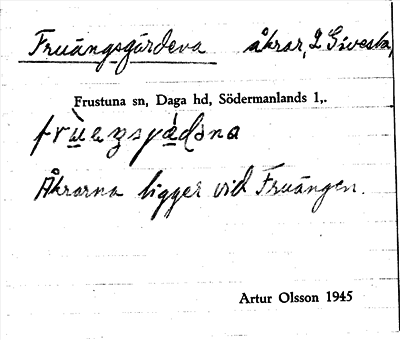 Fruängsgärdena åkrar, L Sivesta,
Frustuna sn, Daga hd, Södermanlands l,.
Åkrarna ligger vid Fruängen.
Artur Olsson 1945